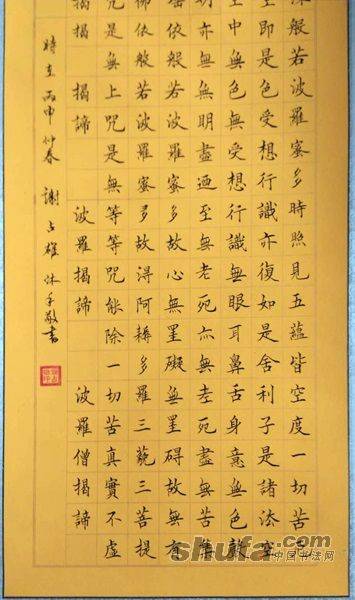 深般若波羅蜜多時照見五蘊皆空度一切苦厄
空即是色受想行識亦復如是舍利子是諸法空
空中無色無受想行識無眼耳鼻舌身意無色聲
亦無無明盡迺至無老死亦無老死盡無苦集
依般若波羅蜜多故心無罣礙無罣碍故無有
佛依般若波羅蜜多故得阿耨多羅三藐三菩提
咒是無上咒是無等等咒能除一切苦真實不虛
揭 揭諦 波羅揭諦 波羅僧揭諦
時在丙申仲春 謝占雄沐手敬書
shufa.com
中国书法网